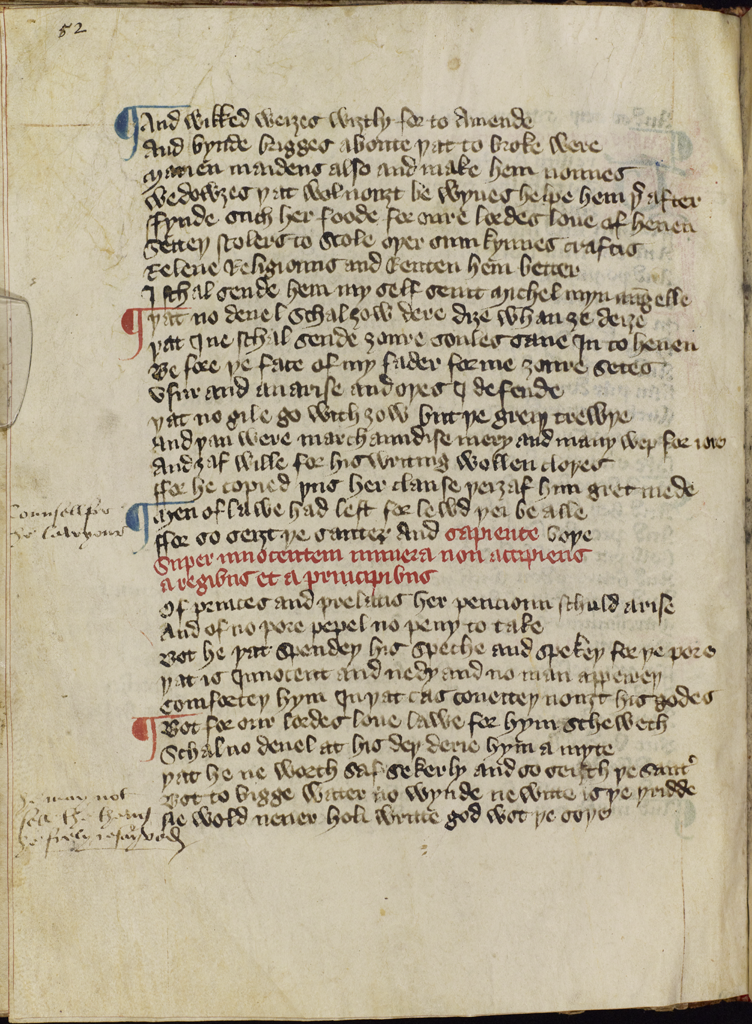 52
And wikked weizes wiztly for to Amende
And bynde brigges aboute yat to broke were
Marien maidens also and make hem nonnes
Wedowzes yat wol nouzt be wyues helpe hem yer after
Ffynde such her foode for oure lordes loue of heuen
Settey scolers to scole oyer sum kynnes craftis
Releue Religiouns and Renten hem better
I schal sende hem my self seint Michel myn aungelle
yat no deuel schal zow dere dize whan ze deize
yat I ne schal sende zoure soules saue In to heuen
Be fore ye face of my fader forme zoure setes
Vsur and auarise and oyes I defende
yat no gile go with zow but ye grey trewye
And yan were marchaundise mery and many wep for ioie
And zaf wille for his writing wollen cloyes
Ffor he copied yus her clause yei zaf him gret mede
Men of lawe had left for lewd yei be alle
Ffor so seizt ye sauter And sapiente boye
Super innocentem munera non accipiens
a regibus et a principibus
Of princes and prelatis her pencioun schuld arise
And of no pore pepel no peny to take
Bot he yat spendey his speche and spekey for ye pore
yat is Innocent and nedy and no man apeirey
Comfortey hym In yat cas coueitey nouzt his godes
Bot for our lordes loue lawe for hym scheweth
Schal no deuel at his dey derie hym a myte
yat he ne worth saf sekerly and so seith ye saut'
Bot to bigge water no wynde ne witte is ye yridde
Ne wold neuer holi write god wot ye soye
he may not